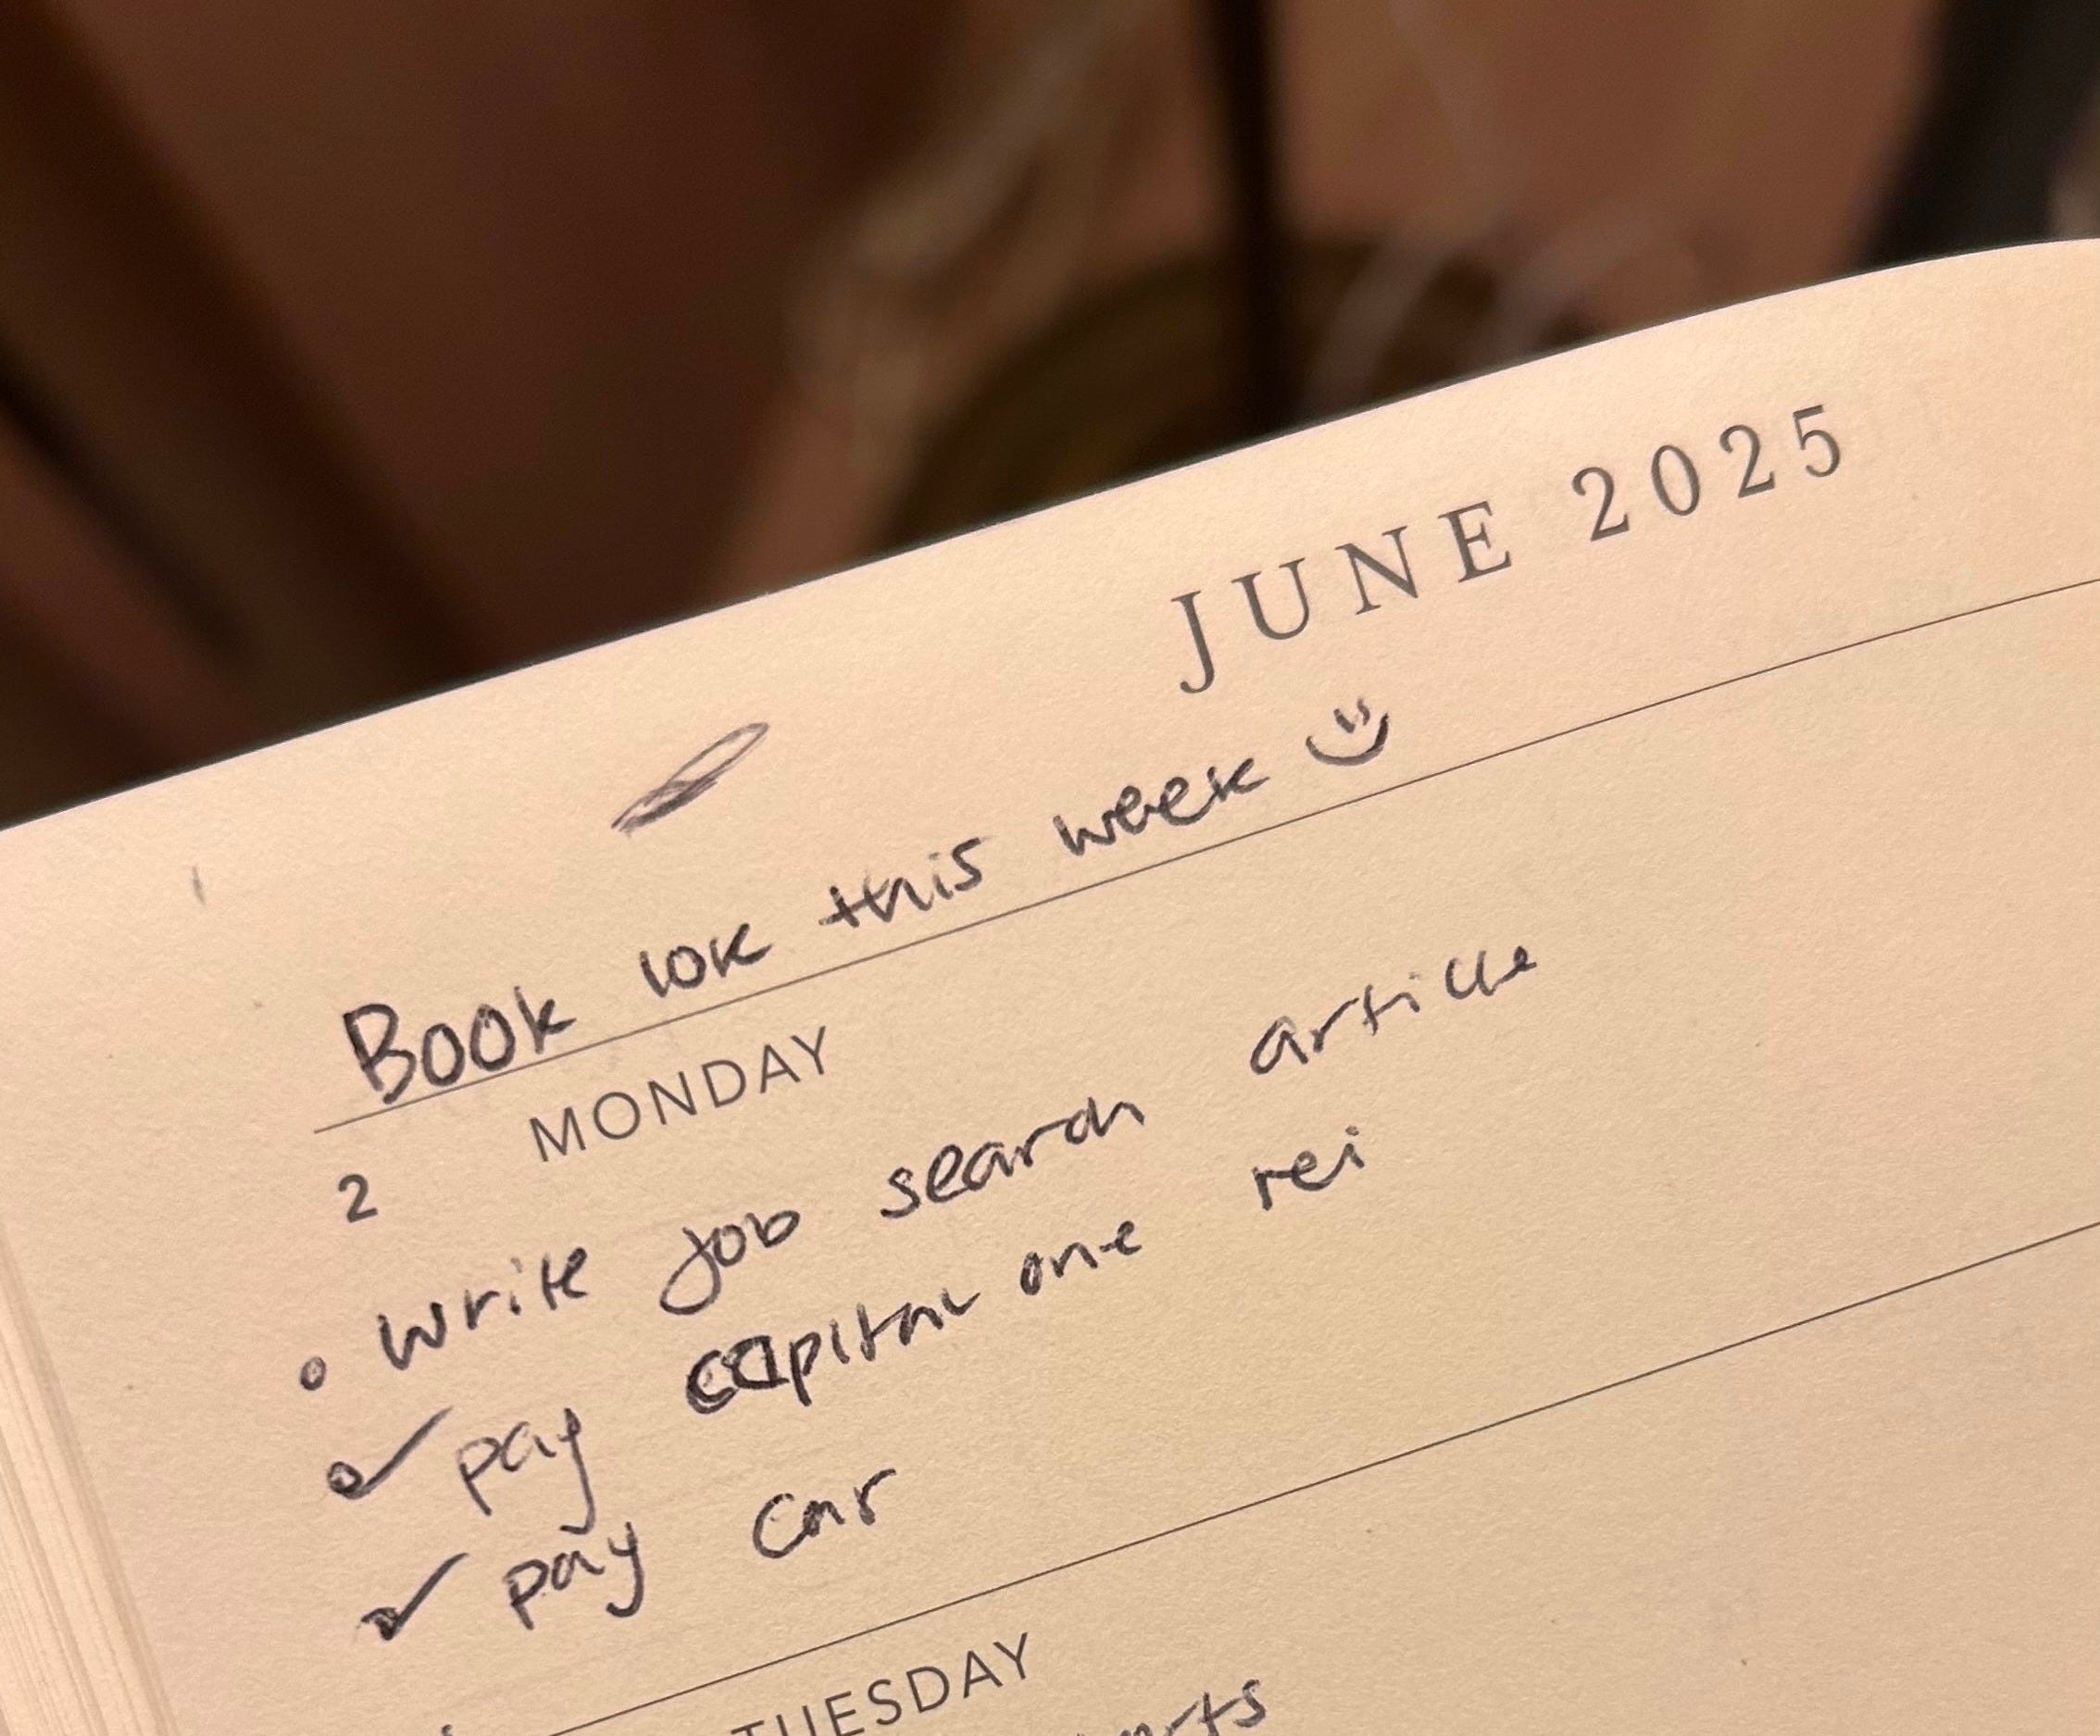 JUNE 2025
Book 10K this week
MONDAY
2
write job search article
pay capital one rei
pay car
TUESDAY